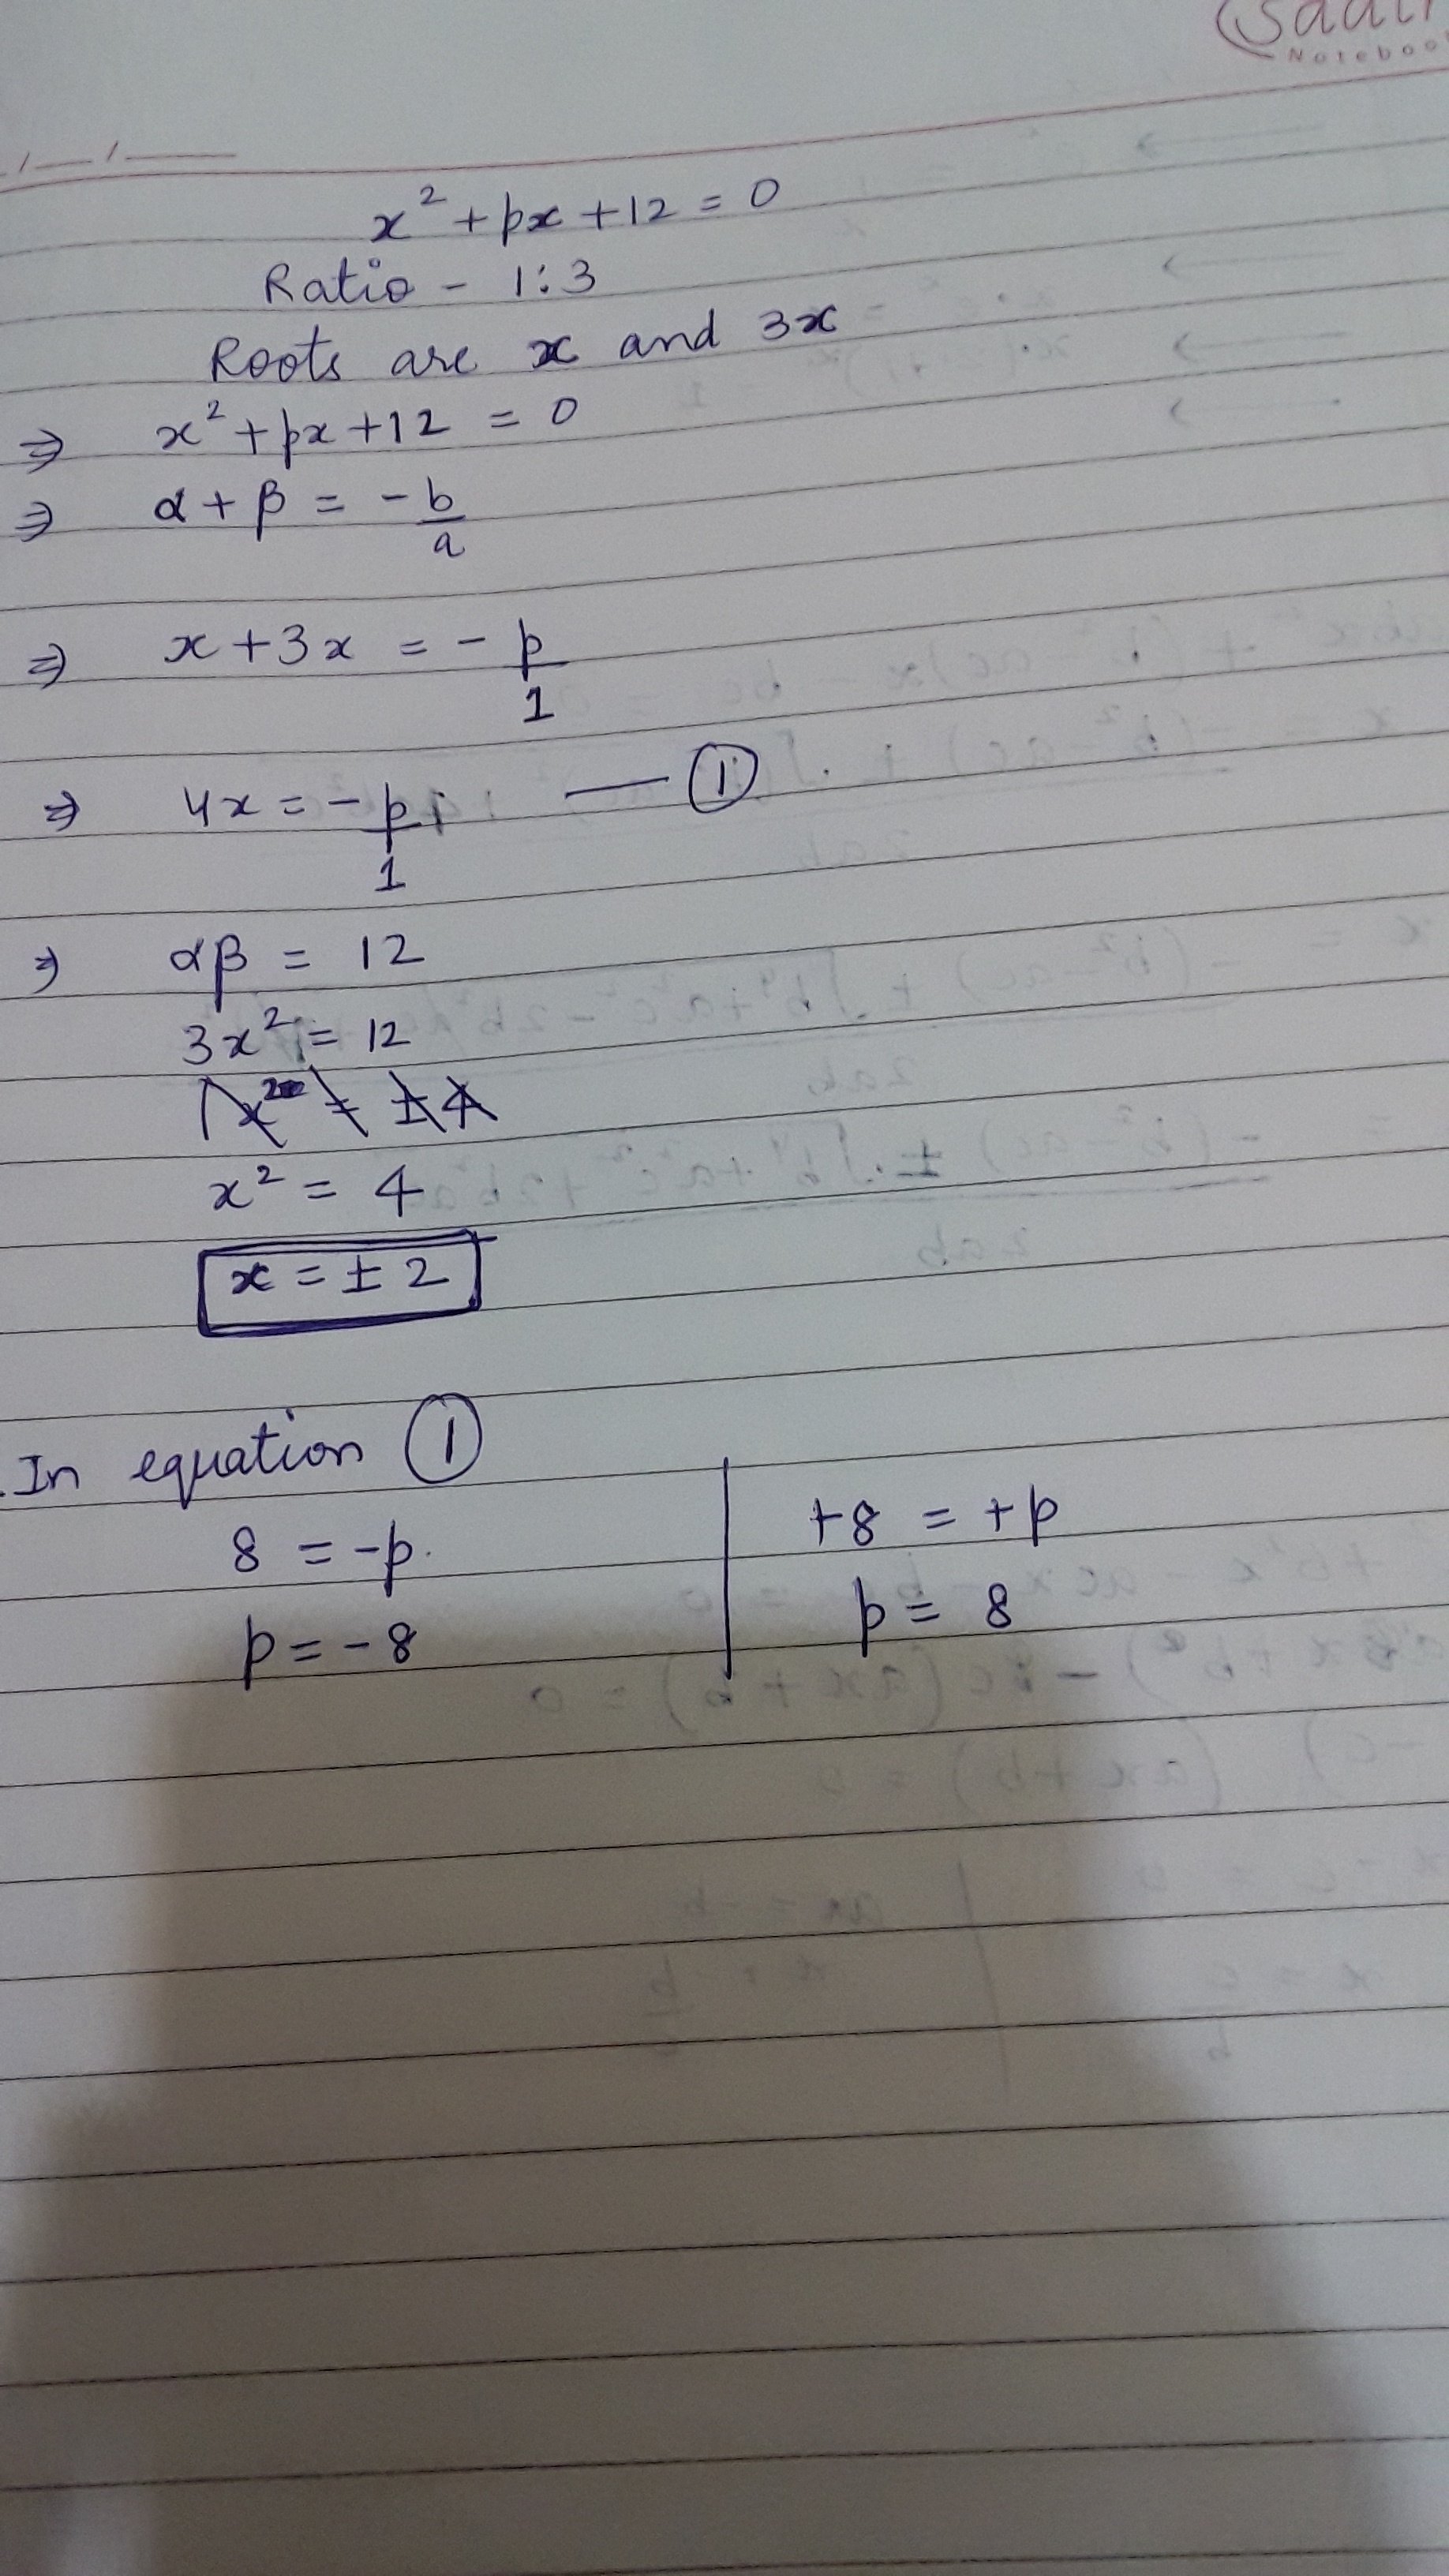 Notebook
x² + px + 12 = 0
Ratio - 1:3
Roots are x and 3x
⇒ x² + px + 12 = 0
⇒ α + β = -b/a
⇒ x + 3x = -p/1
⇒ 4x = -p/1 — ①
⇒ αβ = 12
3x² = 12
x² = 4
x = ± 2
In equation ①
8 = -p | +8 = +p
p = -8 | p = 8